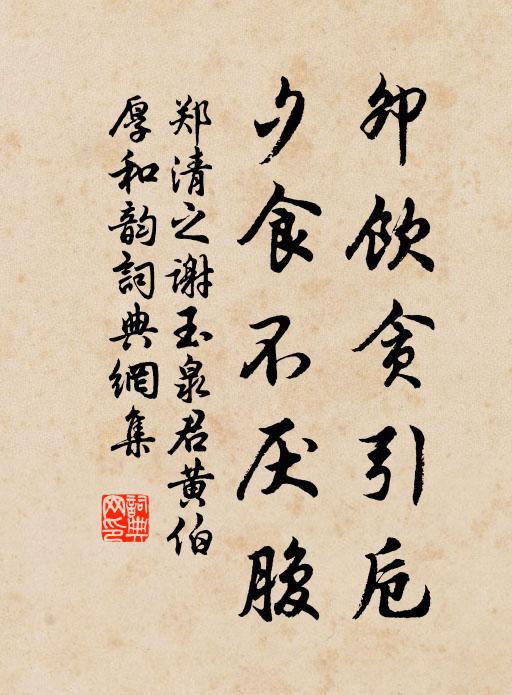 卯饮贪引卮
夕食不厌腹
郑清之谢玉泉君黄伯
厚和韵詞典網集
詞典网印